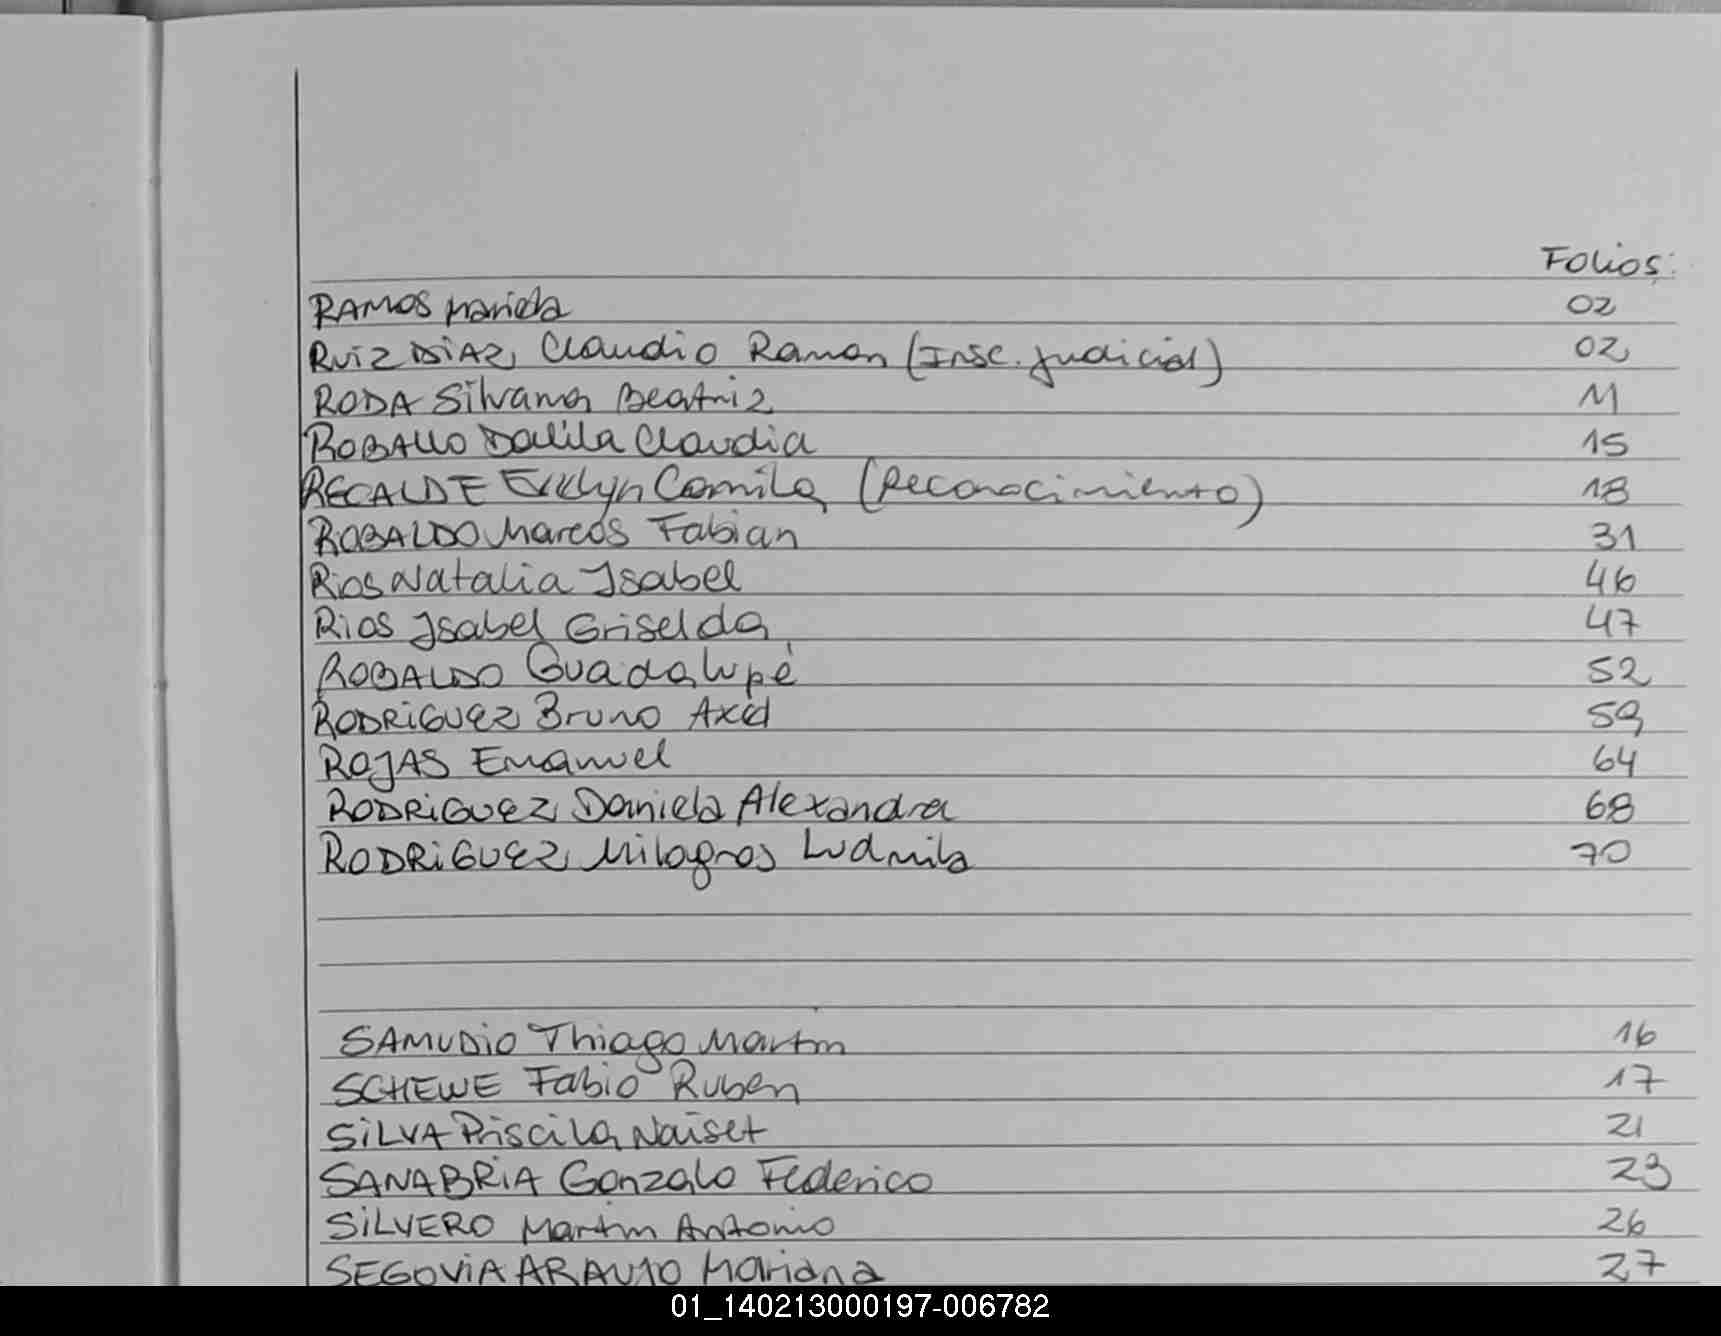 Folios:
RAMOS Mariela 02
RUIZ DIAZ, Claudio Ramon (Insc. Judicial) 02
RODA Silvana Beatriz 11
ROBALLO Dalila Claudia 15
RECALDE Evelyn Camila (Reconocimiento) 18
ROBALDO Marcos Fabian 31
Rios Natalia Isabel 46
Rios Isabel Griselda 47
ROBALDO Guadalupe 52
RODRIGUEZ Bruno Axel 59
ROJAS Emanuel 64
RODRIGUEZ Daniela Alexandra 68
RODRIGUEZ Milagros Ludmila 70
SAMUDIO Thiago Martin 16
SCHEWE Fabio Ruben 17
SILVA Priscila Naiset 21
SANABRIA Gonzalo Federico 23
SILVERO Martin Antonio 26
SEGOVIA ARAUJO Mariana 27
01_140213000197-006782